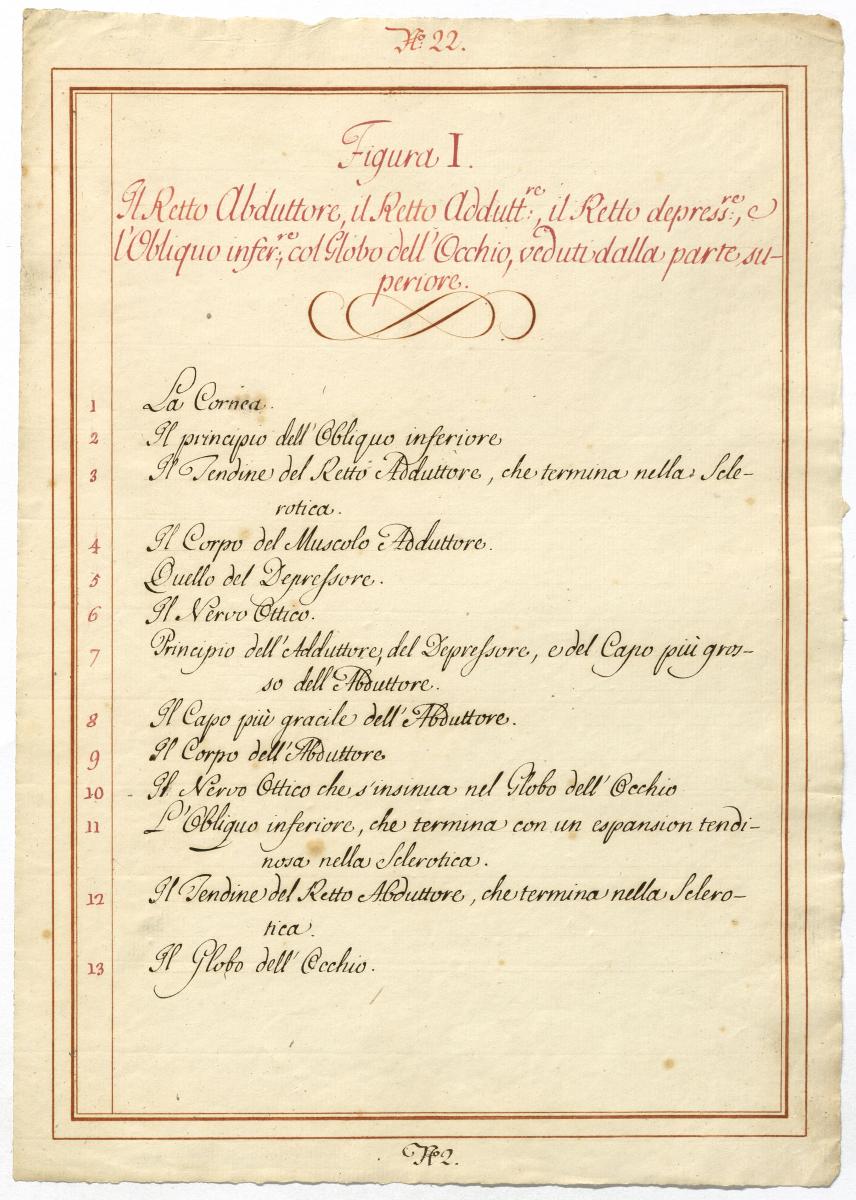 No. 22.
Figura I.
Il Retto Abduttore, il Retto Addutt:re, il Retto depress:re, e
l'Obliquo infer:re, col Globo dell'Occhio, veduti dalla parte su-
periore.
1 La Cornea.
2 Il principio dell'Obliquo inferiore
3 Il Tendine del Retto Adduttore, che termina nella Scle-
rotica.
4 Il Corpo del Muscolo Adduttore.
5 Quello del Depressore.
6 Il Nervo Ottico.
7 Principio dell'Adduttore, del Depressore, e del Capo più gros-
so dell'Abduttore.
8 Il Capo più gracile dell'Abduttore.
9 Il Corpo dell'Abduttore
10 Il Nervo Ottico che s'insinua nel Globo dell'Occhio
11 L'Obliquo inferiore, che termina con un espansion tendi-
nosa nella Sclerotica.
12 Il Tendine del Retto Abduttore, che termina nella Sclero-
tica.
13 Il Globo dell'Occhio.
No 2.